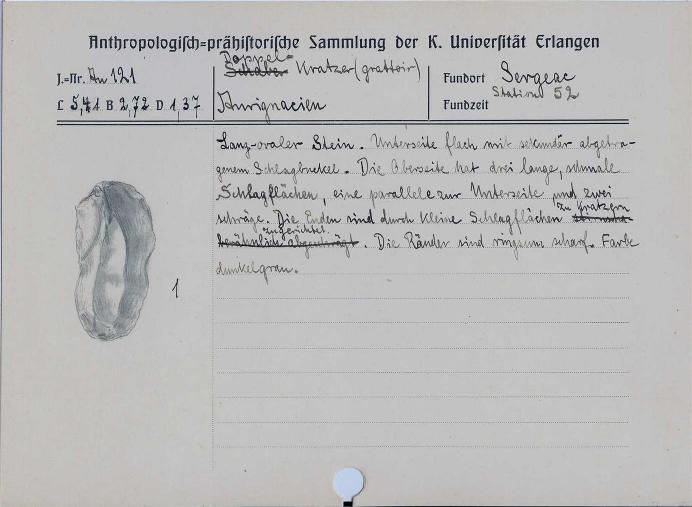 Anthropologisch=prähistorische Sammlung der K. Universität Erlangen
J.=Nr. Au 121
Doppel-
Schaber Kratzer (grattoir)
Fundort Sergeac
Station 52
L 5,41 B 2,72 D 1,37
Aurignacien
Fundzeit
Lang-ovaler Stein. Unterseite flach mit sekundär abgetra-
genem Schlagbuckel. Die Oberseite hat drei lange, schmale
Schlagflächen, eine parallele zur Unterseite und zwei
schräge. Die Enden sind durch kleine Schlagflächen zu Kratzern
zugerichtet. Die Ränder sind ringsum scharf. Farbe
dunkelgrau.
1